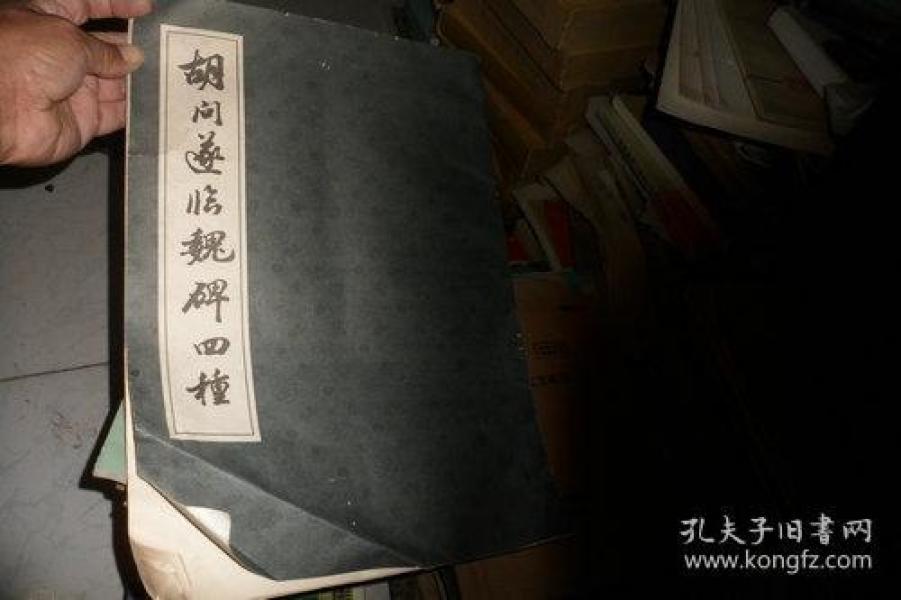 胡问遂临魏碑四種
孔夫子旧書网
www.kongfz.com